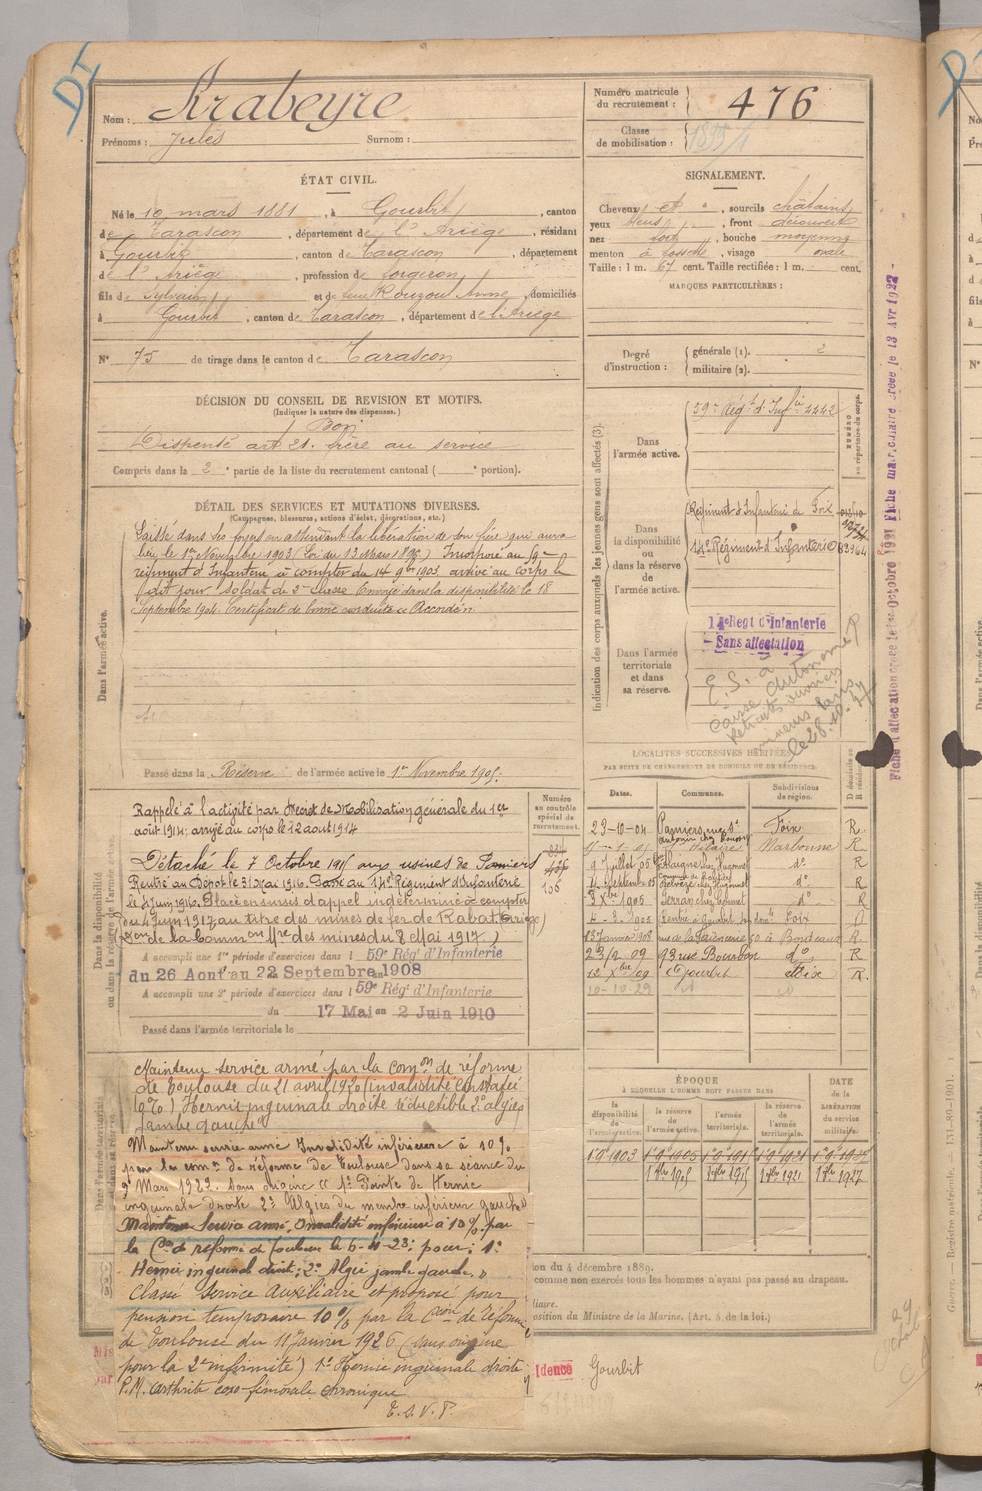 DI
Nom :
Prénoms : Jules Surnom :
Numéro matricule du recrutement : 476
Classe de mobilisation :
ÉTAT CIVIL.
Né le 10 mars 1881, à Gourbit, canton
de Tarascon, département de l'Ariège, résidant
à Gourbit, canton de Tarascon, département
de l'Ariège, profession de forgeron,
fils de Sylvain et de feue Rouzou Anne, domiciliés
à Gourbit, canton de Tarascon, département de l'Ariège
N° 75 de tirage dans le canton de Tarascon
SIGNALEMENT.
Cheveux et, sourcils châtains
yeux, front découvert
nez fort, bouche moyenne
menton à fossette, visage ovale
Taille : 1 m. 67 cent. Taille rectifiée : 1 m. cent.
MARQUES PARTICULIÈRES :
Degré d'instruction : générale (1). 2
militaire (2).
DÉCISION DU CONSEIL DE REVISION ET MOTIFS.
(Indiquer la nature des dispenses.)
Bon
Dispensé art 21. frère au service
Compris dans la 2e partie de la liste du recrutement cantonal ( e portion).
DÉTAIL DES SERVICES ET MUTATIONS DIVERSES.
(Campagnes, blessures, actions d'éclat, décorations, etc.)
Dans l'armée active.
Laissé dans ses foyers en attendant la libération de son frère qui aura
lieu le 1er Novembre 1903 (Loi du 13 Mars 1896) Incorporé au 59e
régiment d'Infanterie à compter du 14 9bre 1903. arrivé au corps le
dit jour soldat de 2e classe. Envoyé dans la disponibilité le 18
Septembre 1904. Certificat de bonne conduite "Accordé"
Passé dans la Réserve de l'armée active le 1er Novembre 1905.
Indication des corps auxquels les jeunes gens sont affectés (3).
Dans l'armée active.
59e Régt d'Infie 4442
NUMÉRO au répertoire du corps.
Dans la disponibilité ou dans la réserve de l'armée active.
Régiment d'Infanterie de Foix
14e Régiment d'Infanterie
Dans l'armée territoriale et dans sa réserve.
14e Regt d'Infanterie
Sans affectation
Caisse Autonome
Retraite ouvriers
mineurs
Fiche matriculaire créée le 13 Avr 1922
LOCALITÉS SUCCESSIVES HABITÉES
PAR SUITE DE CHANGEMENTS DE DOMICILE OU DE RÉSIDENCE.
Dates. Communes. Subdivisions de région. D domicile ou R résidence.
29-10-04 Pamiers Foix R.
Narbonne R
9 Juillet 05 do R
4 Septembre 05 do R
Xbre 1905 do R
4-3-1908 Rentré à Gourbit Foix D
13 Janvier 1908 rue de la Faïencerie 50 à Bordeaux R.
23/2 09 93 rue Bourbon do R
12 Xbre 09 Gourbit Foix R.
10-10-29
Dans la disponibilité ou dans la réserve de l'armée active.
Numéro au contrôle spécial du recrutement.
156
Rappelé à l'activité par Décret de Mobilisation générale du 1er
août 1914; arrivé au corps le 12 août 1914
Détaché le 7 Octobre 1915 aux usines de Pamiers
Rentré au Dépôt le 31 Mai 1916. Passé au 14e Régiment d'Infanterie
le 4 juin 1916. Placé en sursis d'appel indéterminé à compter
du 4 Juin 1917 au titre des mines de fer de Rabat (Ariège)
(Don de la Common Mre des mines du 8 Mai 1917.)
A accompli une 1re période d'exercices dans l 59e Rég' d'Infanterie
du 26 Aout au 22 Septembre 1908
A accompli une 2e période d'exercices dans l 59e Rég' d'Infanterie
du 17 Mai au 2 Juin 1910
Passé dans l'armée territoriale le
ÉPOQUE
À LAQUELLE L'HOMME DOIT PASSER DANS
la disponibilité de l'armée active. la réserve de l'armée active. l'armée territoriale. la réserve de l'armée territoriale.
DATE de la LIBÉRATION du service militaire.
1 9bre 1903 1 9bre 1905
1 9bre 1905 1 9bre 1915 1 9bre 1921 1 9bre 1927
Maintenu service armé par la comon de réforme
de Toulouse du 21 avril 1920 (invalidité constatée
0%) Hernie inguinale droite réductible 2° algies
jambe gauche"
Maintenu service armé Invalidité inférieure à 10%
par la comon de réforme de Toulouse dans sa séance du
9 Mars 1922. sans origine " 1° Pointe de Hernie
inguinale droite 2° Algies du membre inférieur gauche"
Maintenu Service armé, Invalidité inférieure à 10% par
la Con de réforme de Toulouse le 6-4-23: pour: 1°
Hernie inguinale droite; 2° Algie jambe gauche "
Classé Service Auxiliaire et proposé pour
pension temporaire 10% par la Ccion de réforme
de Toulouse du 11 Janvier 1926 (sans origine
pour la 2e infirmité) 1° Hernie inguinale droite
P.M. arthrite coxo-fémorale chronique
T.S.V.P.
ion du 4 décembre 1889.
comme non exercés tous les hommes n'ayant pas passé au drapeau.
liaire.
position du Ministre de la Marine. (Art. 4 de la loi.)
idence Gourbit
Guerre. — Registre matricule. — 131-89-1901.